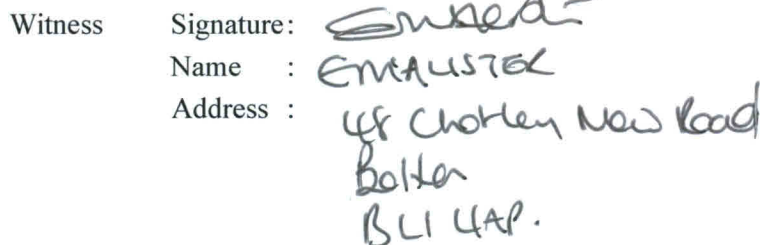 Witness Signature:
Name : E MCALISTER
Address :
48 Chorley New Road
Bolton
BL1 4AP.